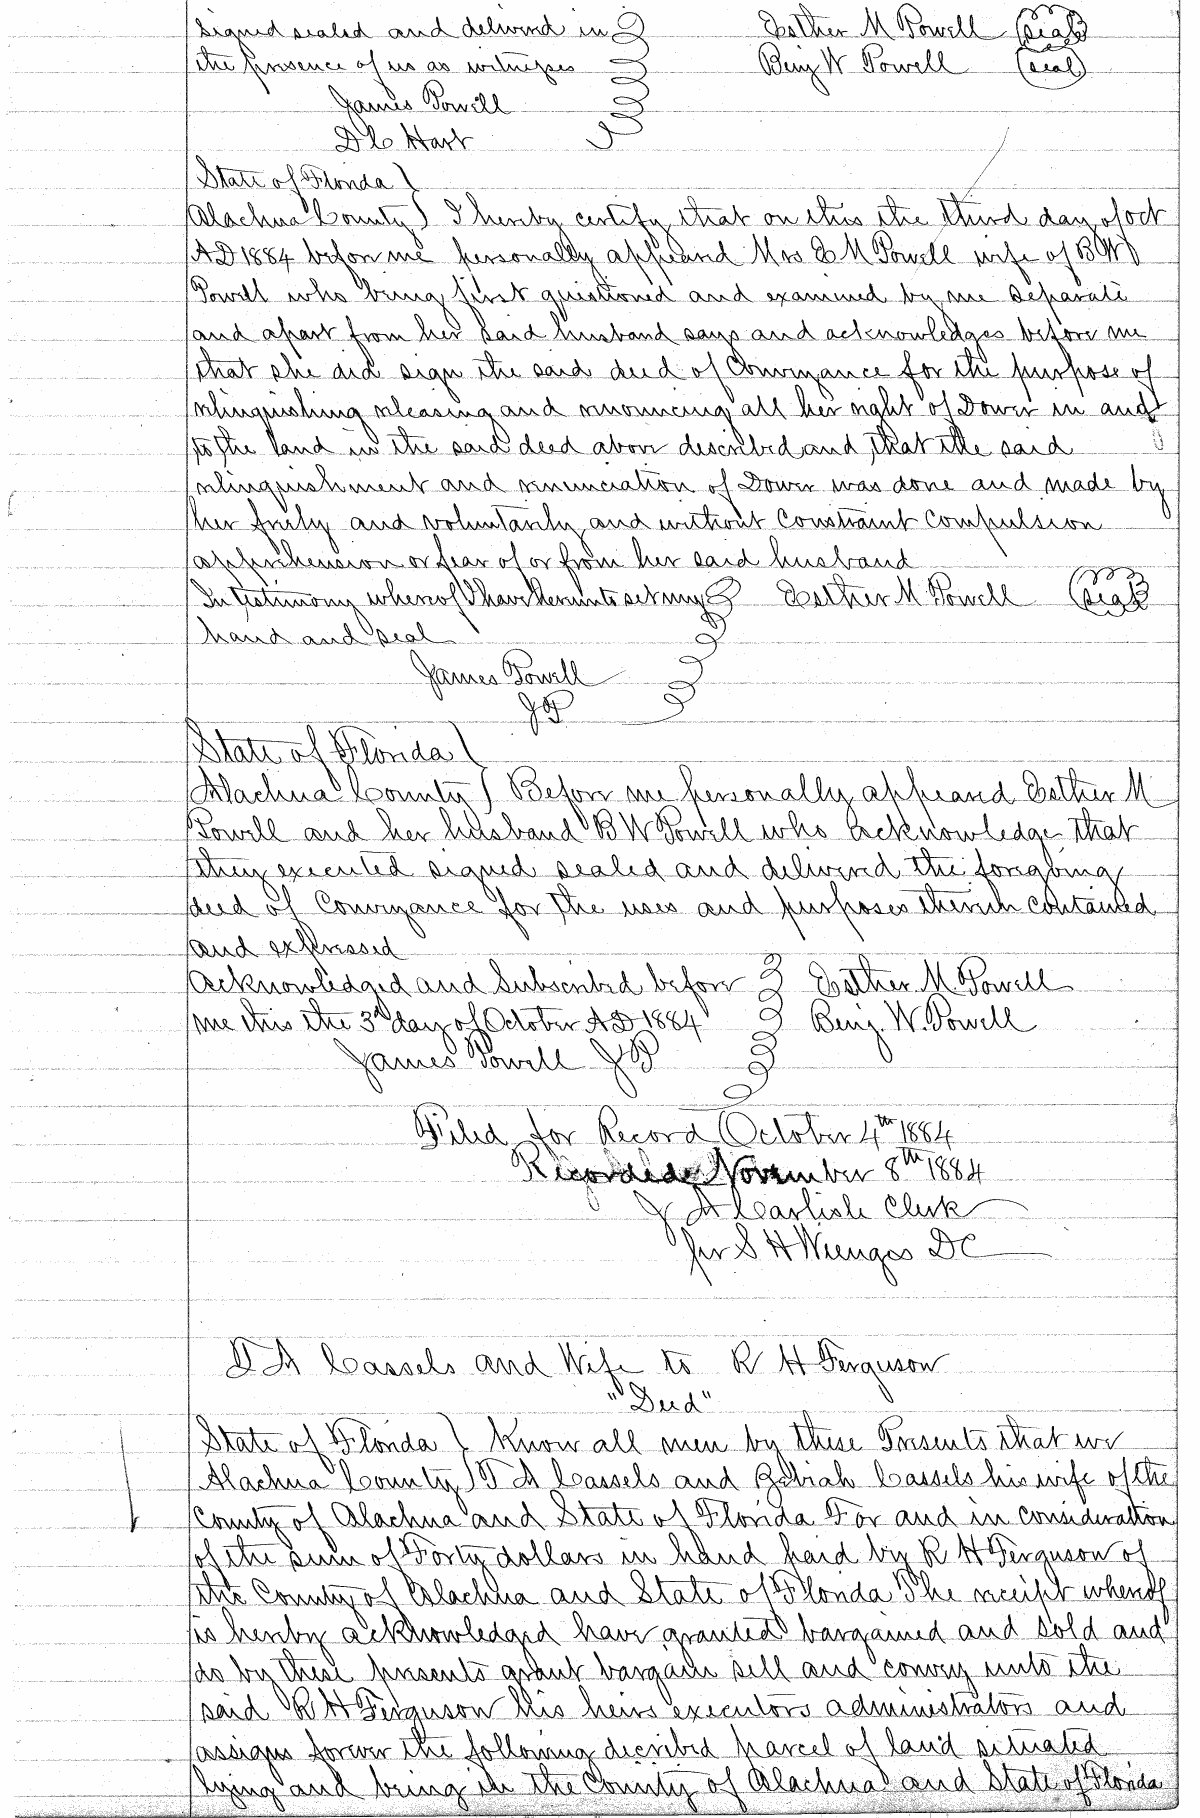 Signed sealed and delivered in Esther M Powell (seal)
the presence of us as witnesses Benj W Powell (seal)
James Powell
D C Hart
State of Florida
Alachua County I hereby certify that on this the third day of Oct
AD 1884 before me personally appeared Mrs E M Powell wife of B W
Powell who being first questioned and examined by me separate
and apart from her said husband says and acknowledges before me
that she did sign the said deed of Conveyance for the purpose of
relinquishing releasing and renouncing all her right of Dower in and
to the land in the said deed above described and that the said
relinquishment and renunciation of Dower was done and made by
her freely and voluntarily and without constraint compulsion
apprehension or fear of or from her said husband
In testimony whereof I have hereunto set my Esther M Powell (seal)
hand and seal
James Powell
JP
State of Florida
Alachua County Before me personally appeared Esther M
Powell and her husband B W Powell who acknowledge that
they executed signed sealed and delivered the foregoing
deed of Conveyance for the uses and purposes therein contained
and expressed
Acknowledged and Subscribed before Esther M. Powell
me this the 3d day of October AD 1884 Benj. W. Powell
James Powell JP
Filed for Record October 4th 1884
Recorded November 8th 1884
J A Carlisle Clerk
per S H Wienges DC
T A Cassels and Wife to R H Ferguson
"Deed"
State of Florida Know all men by these Presents that we
Alachua County T A Cassels and Zebiah Cassels his wife of the
County of Alachua and State of Florida For and in consideration
of the sum of Forty dollars in hand paid by R H Ferguson of
the County of Alachua and State of Florida The receipt whereof
is hereby acknowledged have granted bargained and sold and
do by these presents grant bargain sell and convey unto the
said R H Ferguson his heirs executors administrators and
assigns forever the following decribed parcel of land situated
lying and being in the County of Alachua and State of Florida